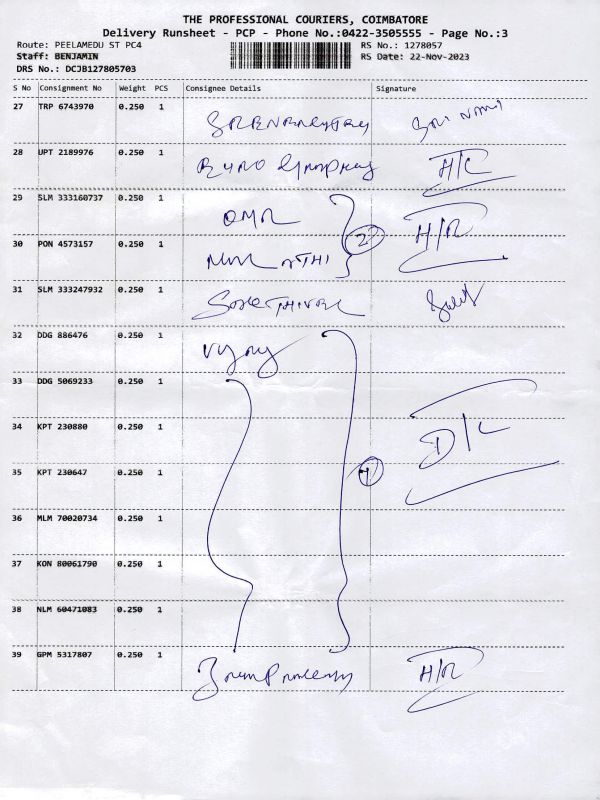 THE PROFESSIONAL COURIERS, COIMBATORE
Delivery Runsheet - PCP - Phone No.:0422-3505555 - Page No.:3
Route: PEELAMEDU ST PC4 RS No.: 1278057
Staff: BENJAMIN RS Date: 22-Nov-2023
DRS No.: DCJB127805703
S No Consignment No Weight PCS Consignee Details Signature
27 TRP 6743970 0.250 1
28 UPT 2189976 0.250 1 H/C
29 SLM 333160737 0.250 1 H/R
30 PON 4573157 0.250 1 2
31 SLM 333247932 0.250 1
32 DDG 886476 0.250 1
33 DDG 5069233 0.250 1
34 KPT 230880 0.250 1 D/C
35 KPT 230647 0.250 1
36 MLM 70020734 0.250 1
37 KON 80061790 0.250 1
38 NLM 60471083 0.250 1
39 GPM 5317807 0.250 1 H/R